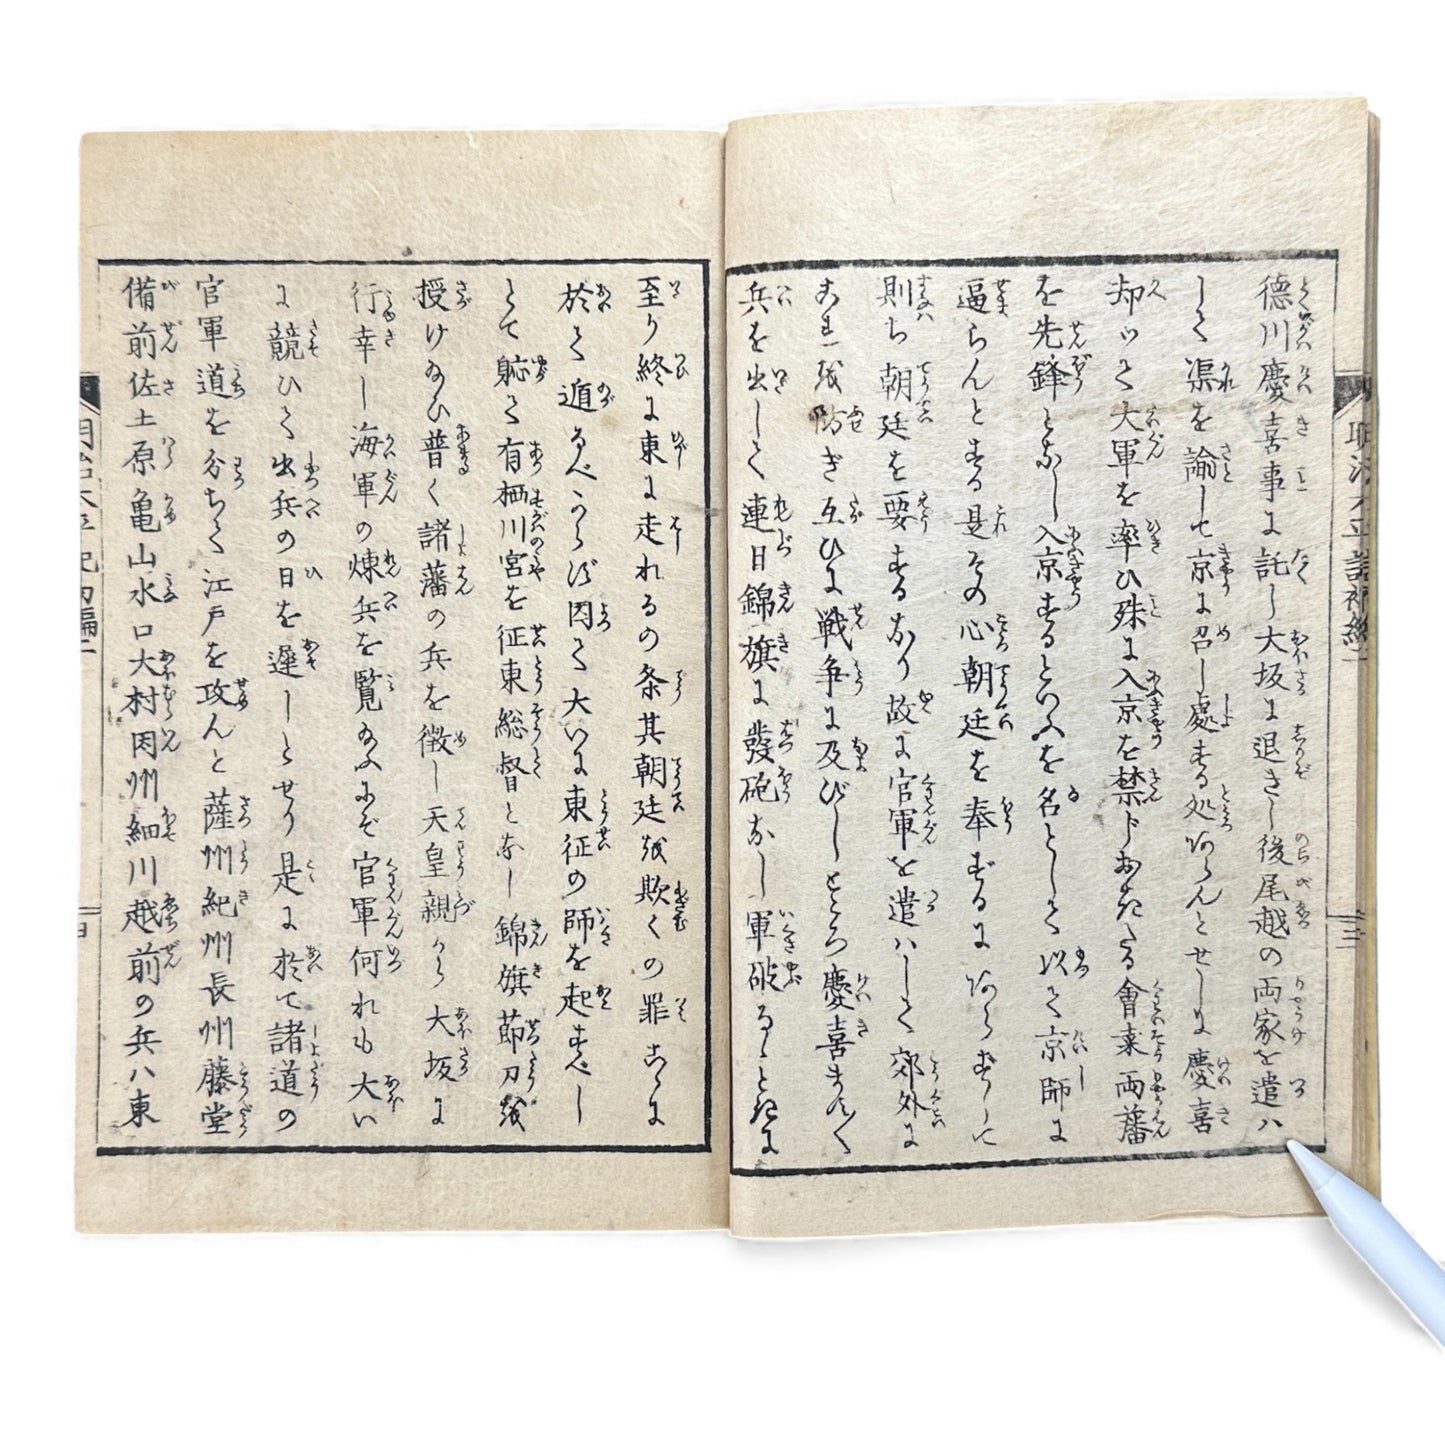 徳川慶喜事に託し大坂に退きし後尾越の両家を遣ハ
して渠を諭して京に召し處する処あらんとせしに慶喜
却ツて大軍を率ひ殊に入京を禁トおかれたる會桒両藩
を先鋒となし入京するといふを名として以て京師に
逼らんとする是その心朝廷を奉ずるにあらずして
則ち朝廷を要するなり故に官軍を遣ハして郊外に
これを防ぎ互ひに戦争に及びしところ慶喜ます〱
兵を出して連日錦旗に發砲なし軍破るゝときに
至り終に東に走れるの条其朝廷を欺くの罪こゝに
於て遁るべからず因て大いに東征の師を起すべし
とて恥て有栖川宮を征東総督となし錦旗節刀を
授け給ひ普く諸藩の兵を徴し天皇親から大坂に
行幸し海軍の煉兵を覧給ふにぞ官軍何れも大い
に競ひて出兵の日を遅しとせり是に於て諸道の
官軍道を分ちて江戸を攻んと薩州紀州長州藤堂
備前佐土原亀山水口大村因州細川越前の兵ハ東
明治太平記初編二
三
四